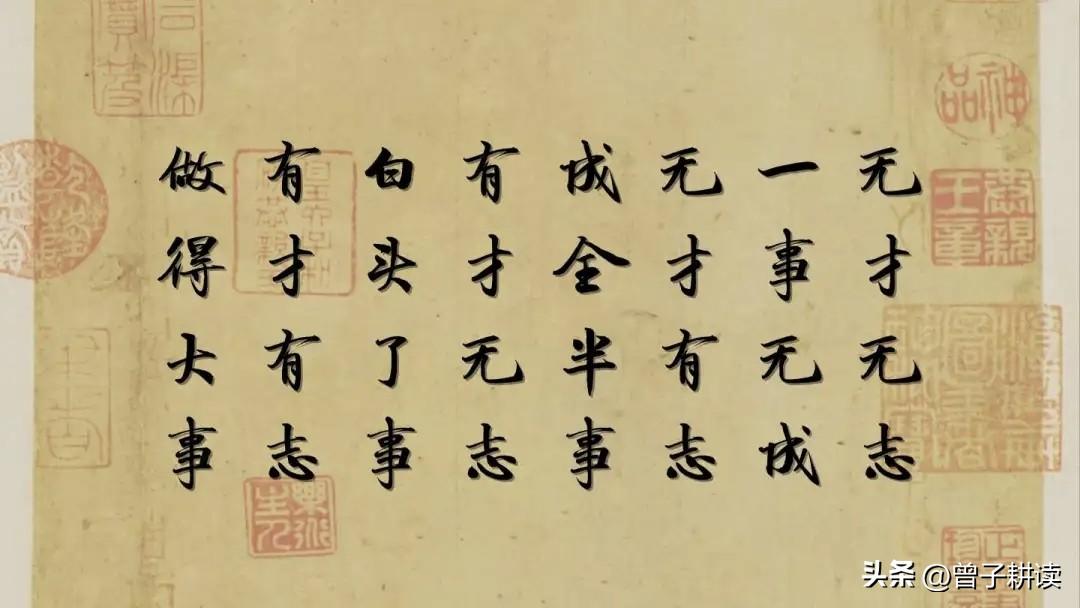 无才无志
一事无成
无才有志
成全半事
有才无志
白头了事
有才有志
做得大事
神品
头条 @曾子耕读